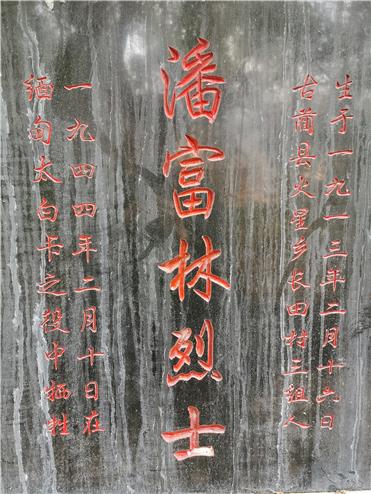 生于一九一三年二月十六日
古蔺县火星乡长田村三组人
潘富林烈士
一九四四年二月十日在
缅甸太白卡之役中牺牲